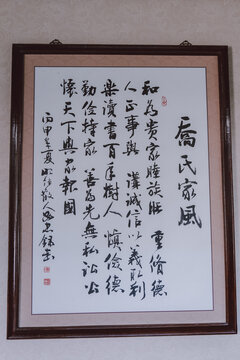 喬氏家風
和為貴家睦族旺 重脩德
人正事興 謹誠信以義取利
樂讀書百年樹人 慎儉德
勤儉持家 善為先無私訟公
懷天下興家報國
丙申年夏